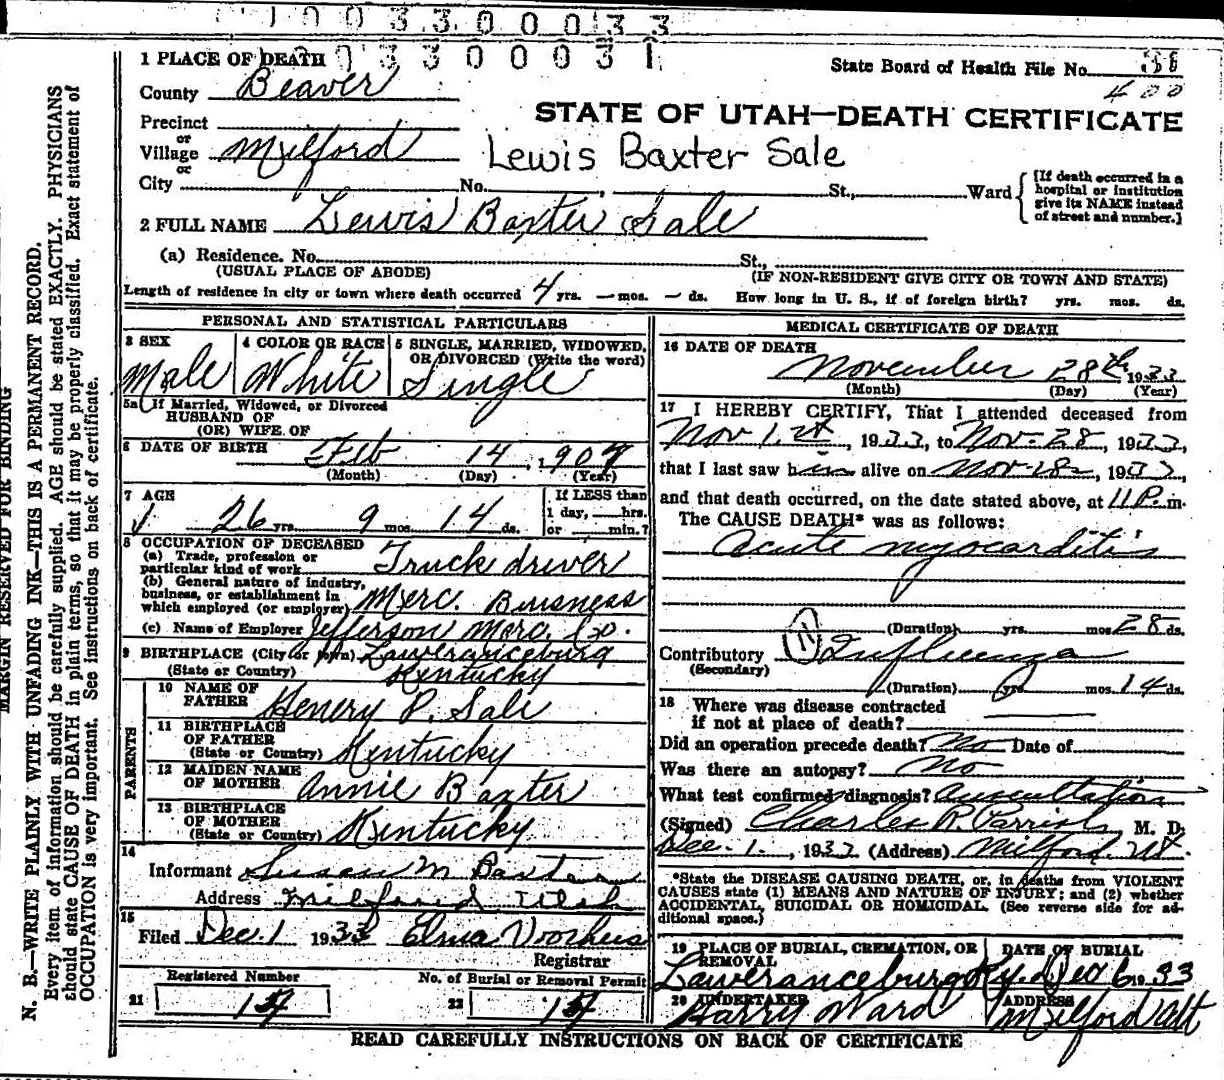 1003300033
1003300031
1 PLACE OF DEATH
State Board of Health File No.
400
County Beaver
STATE OF UTAH—DEATH CERTIFICATE
Precinct
or
Village Milford
Lewis Baxter Sale
or
City No. St., Ward
[If death occurred in a hospital or institution give its NAME instead of street and number.]
2 FULL NAME Lewis Baxter Sale
(a) Residence. No. St.,
(USUAL PLACE OF ABODE) (IF NON-RESIDENT GIVE CITY OR TOWN AND STATE)
Length of residence in city or town where death occurred 4 yrs. — mos. — ds. How long in U. S., if of foreign birth? yrs. mos. ds.
PERSONAL AND STATISTICAL PARTICULARS
3 SEX 4 COLOR OR RACE 5 SINGLE, MARRIED, WIDOWED,
OR DIVORCED (Write the word)
Male White Single
5a If Married, Widowed, or Divorced
HUSBAND OF
(OR) WIFE OF
6 DATE OF BIRTH Feb 14, 1907
(Month) (Day) (Year)
7 AGE If LESS than
26 yrs. 9 mos. 14 ds. 1 day, hrs.
or min.?
8 OCCUPATION OF DECEASED
(a) Trade, profession or
particular kind of work Truck driver
(b) General nature of industry,
business, or establishment in
which employed (or employer) Merc. Buisness
(c) Name of Employer Jefferson Merc. Co.
9 BIRTHPLACE (City or town) Laweranceburg
(State or Country) Kentucky
PARENTS
10 NAME OF
FATHER Henery P. Sale
11 BIRTHPLACE
OF FATHER
(State or Country) Kentucky
12 MAIDEN NAME
OF MOTHER Annie Baxter
13 BIRTHPLACE
OF MOTHER
(State or Country) Kentucky
14
Informant Susan M Baxter
Address Milford Utah
15
Filed Dec. 1 1933 Elma Voorhees
Registrar
Registered Number No. of Burial or Removal Permit
21 22
MEDICAL CERTIFICATE OF DEATH
16 DATE OF DEATH
November 28th 1933
(Month) (Day) (Year)
17 I HEREBY CERTIFY, That I attended deceased from
Nov 1st, 1933, to Nov-28, 1933,
that I last saw him alive on Nov-28, 1933,
and that death occurred, on the date stated above, at 11 P. m.
The CAUSE DEATH* was as follows:
Acute myocarditis
(Duration) yrs. mos 28 ds.
Contributory (11) Influenza
(Secondary)
(Duration) yrs. mos. 14 ds.
18 Where was disease contracted
if not at place of death?
Did an operation precede death? No Date of
Was there an autopsy? No
What test confirmed diagnosis? Auscultation
(Signed) Charles R. Parrish M. D.
Dec. 1., 1933 (Address) Milford. Ut.
*State the DISEASE CAUSING DEATH, or, in deaths from VIOLENT
CAUSES state (1) MEANS AND NATURE OF INJURY; and (2) whether
ACCIDENTAL, SUICIDAL OR HOMICIDAL. (See reverse side for ad-
ditional space.)
19 PLACE OF BURIAL, CREMATION, OR DATE OF BURIAL
REMOVAL
Laweranceburg Ky. Dec 6 1933
20 UNDERTAKER ADDRESS
Harry Ward Milford Ut
READ CAREFULLY INSTRUCTIONS ON BACK OF CERTIFICATE
MARGIN RESERVED FOR BINDING
N. B.—WRITE PLAINLY WITH UNFADING INK—THIS IS A PERMANENT RECORD.
Every item of information should be carefully supplied. AGE should be stated EXACTLY. PHYSICIANS
should state CAUSE OF DEATH in plain terms, so that it may be properly classified. Exact statement of
OCCUPATION is very important. See instructions on back of certificate.